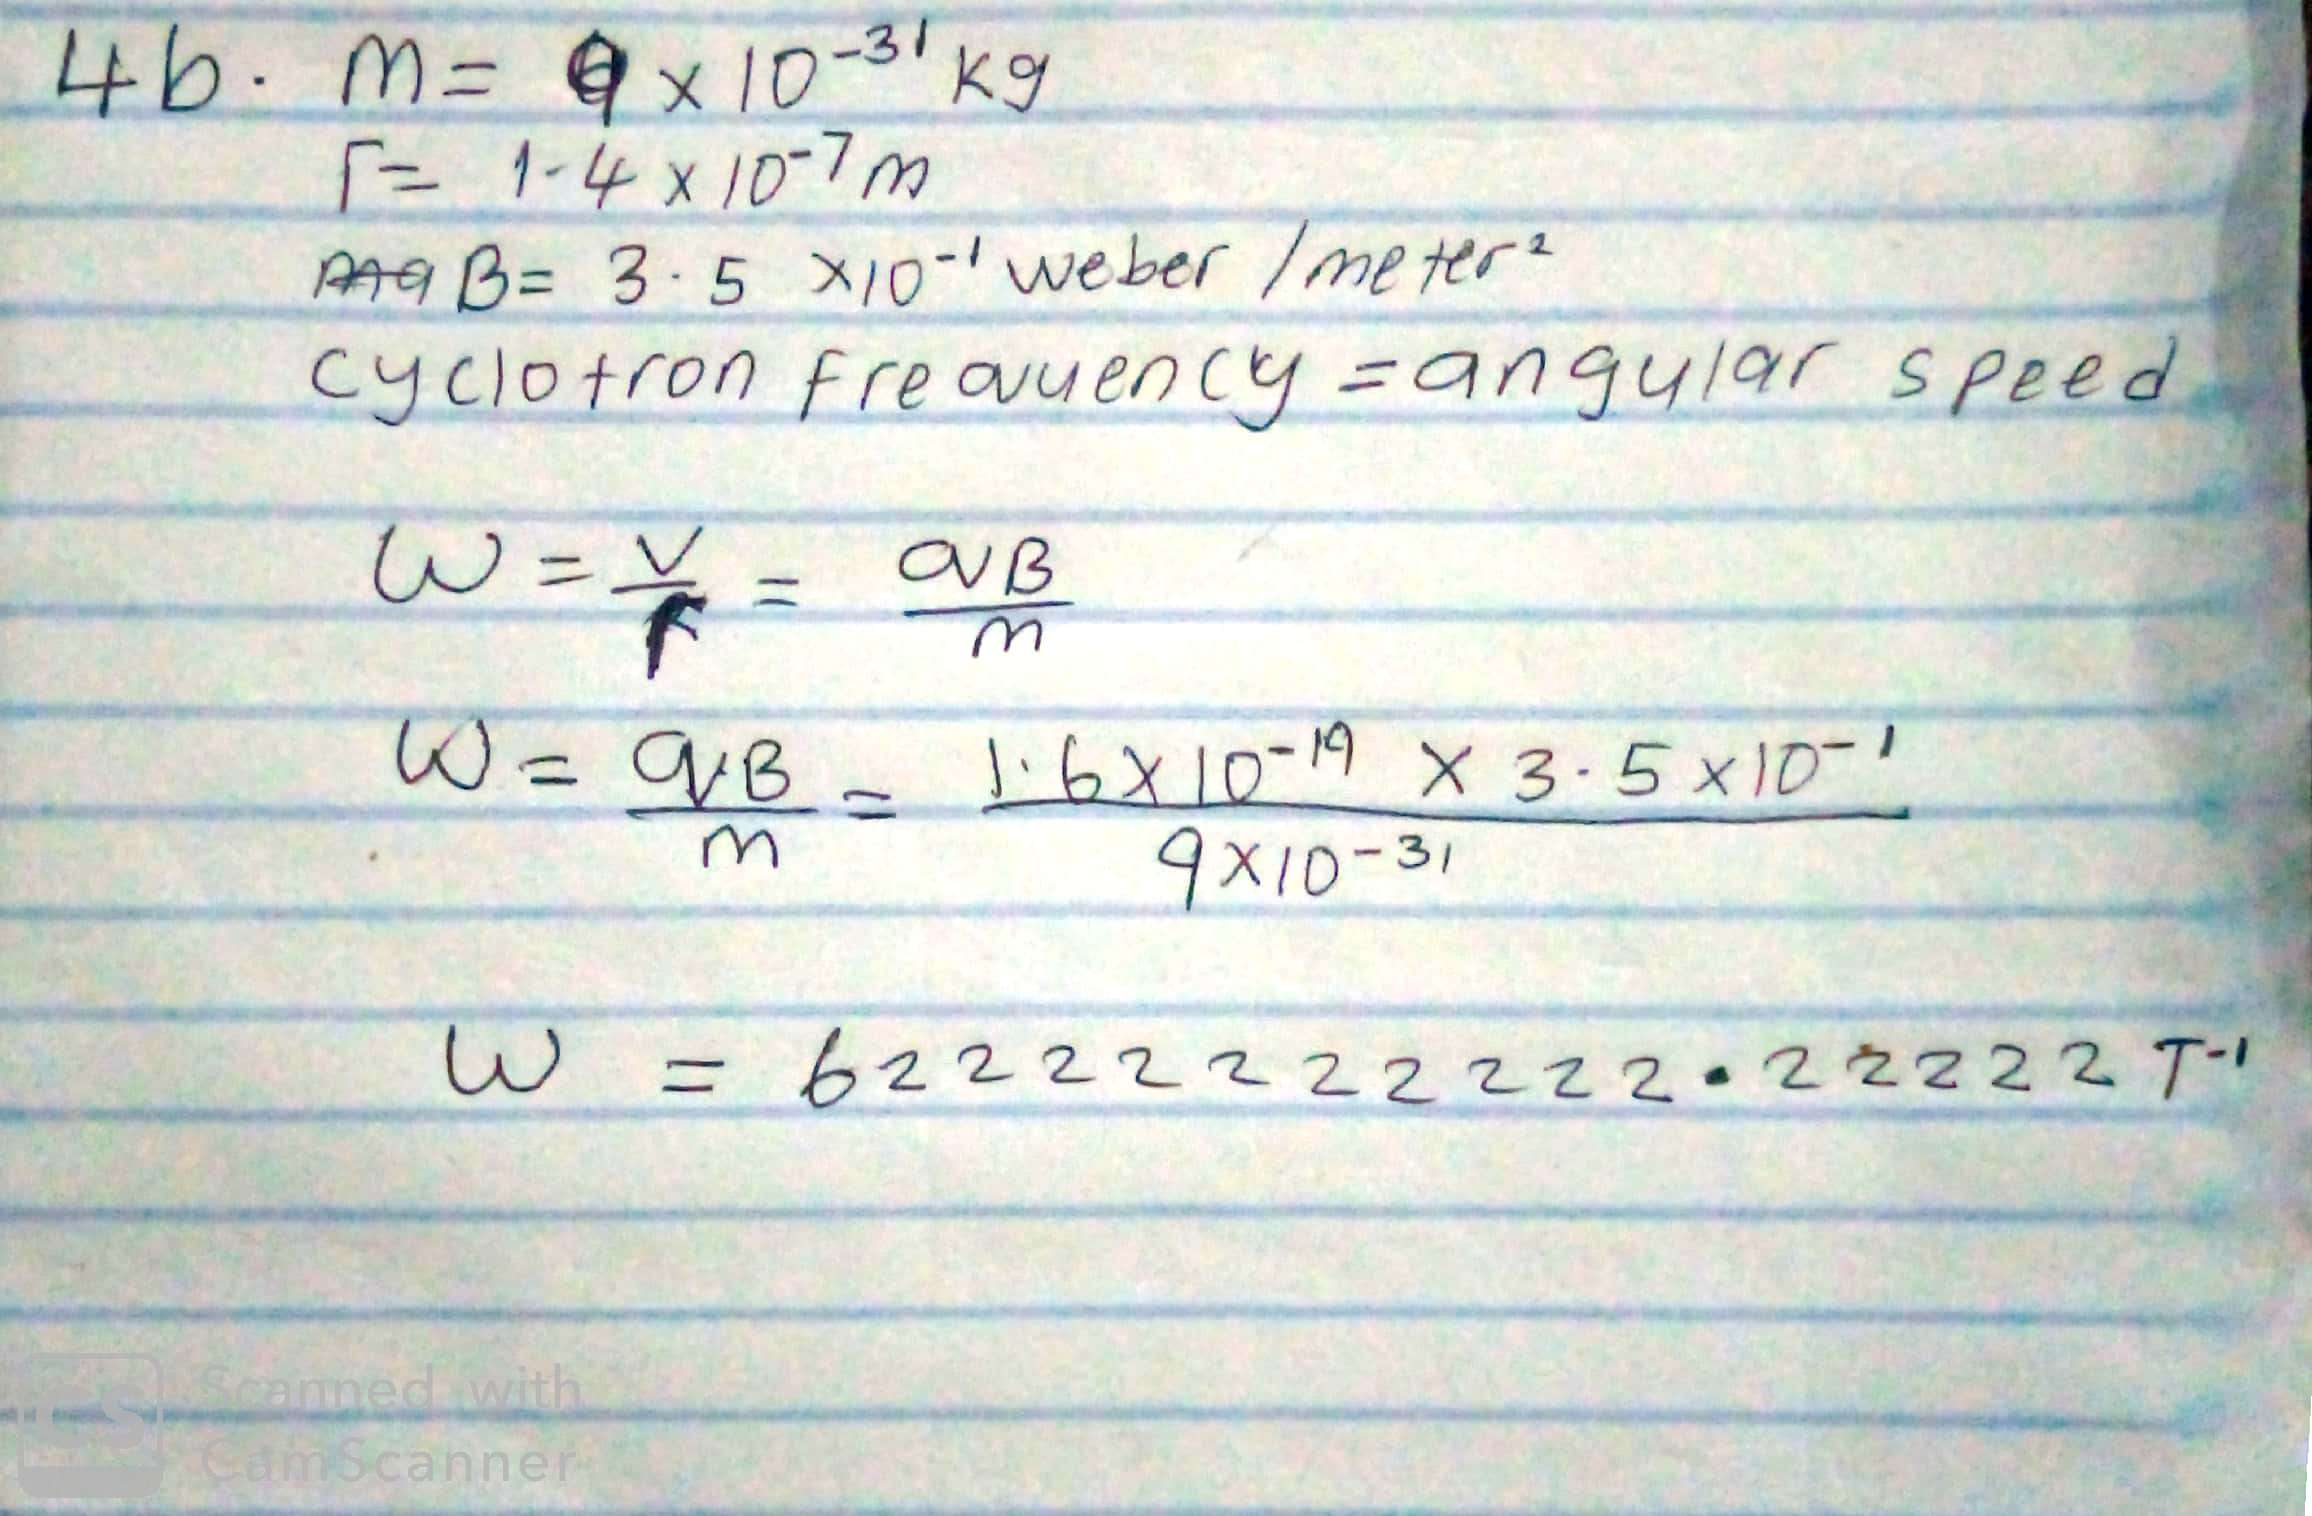 4b. m= 9 x 10-31 kg
r= 1.4 x 10-7 m
B= 3.5 x10-1 weber /meter2
cyclotron frequency = angular speed
W = v/r = qB/m
W = qB/m = 1.6x10-19 x 3.5x10-1 / 9x10-31
W = 62222222222.22222 T-1
Scanned with
CamScanner